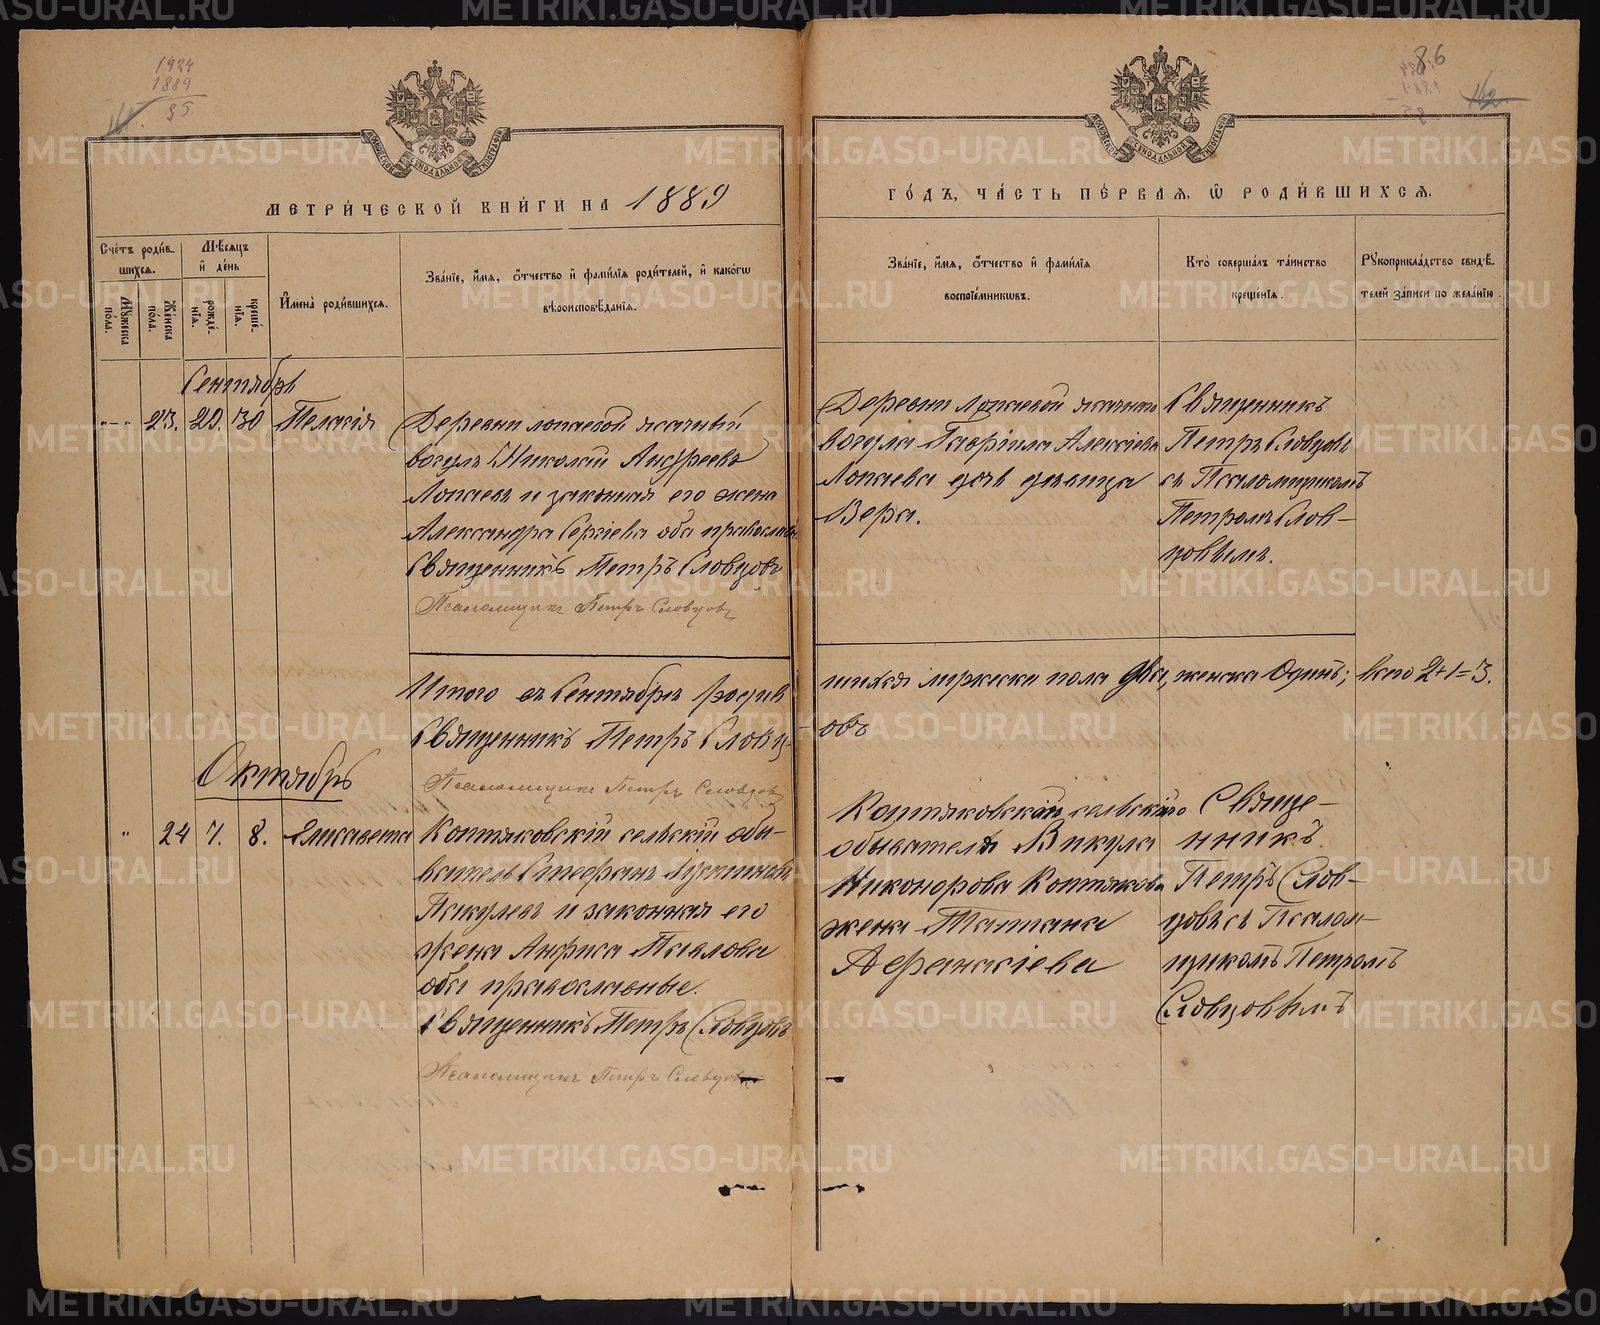 1924
1889
85
86
162
МОСКОВСКОЙ СѴНОДАЛЬНОЙ ТИПОГРАФІИ
МОСКОВСКОЙ СѴНОДАЛЬНОЙ ТИПОГРАФІИ
МЕТРИ́ЧЕСКОЙ КНИ́ГИ НА 1889
ГО́ДЪ, ЧА́СТЬ ПЕ́РВАЯ, Ѽ РОДИ́ВШИХСЯ.
Счётъ роди́в-
шихся.
Мѣ́сяцъ
и҆ де́нь
Мꙋ́жеска
по́ла.
Же́нска
по́ла.
рожде́-
нїѧ.
креще́-
нїѧ.
И҆мена̀ роди́вшихся.
Зва́нїе, и҆́мя, ѻ҆́тчество и҆ фами́лїя роди́телей, и҆ како́гѡ
вѣроисповѣ́данїя.
Зва́нїе, и҆́мя, ѻ҆́тчество и҆ фами́лїя
воспрїе́мникѡвъ.
Кто̀ соверша́лъ та́инство
креще́нїя.
Рꙋкоприкла́дство свидѣ́-
телей за́писи по жела́нїю.
Сентябрь
"—" 23. 29. 30 Пелагія
Деревни Лопаевой ясачный
вогулъ Николай Андреевъ
Лопаевъ и законная его жена
Александра Сергіева оба православн
Священникъ Петръ Словцовъ
Псаломщикъ Петръ Словцовъ
Деревни Лопаевой ясачнаго
вогула Гавріила Алексіева
Лопаева дочь девица
Вера.
Священникъ
Петръ Словцовъ
съ Псаломщикомъ
Петромъ Слов-
цовымъ.
Итого въ Сентябрѣ родив
шихся мужеска пола два, женска Одинъ; Всего 2+1=3.
Священникъ Петръ Словц-
овъ
Псаломщикъ Петръ Словцовъ
Октябрь
" 24 7. 8. Елисавета
Коптяковскій сельскій обы-
ватель Стефанъ Іустиновъ
Пакулевъ и законная его
жена Анфиса Павлова
оба православные.
Священникъ Петръ Словцовъ
Псаломщикъ Петръ Словцовъ
Коптяковскаго сельскаго
обывателя Викула
Никонорова Коптякова
жена Татіана
Афанасіева
Священ-
никъ
Петръ Слов-
цовъ съ Псалом-
щикомъ Петромъ
Словцовымъ
METRIKI.GASO-URAL.RU